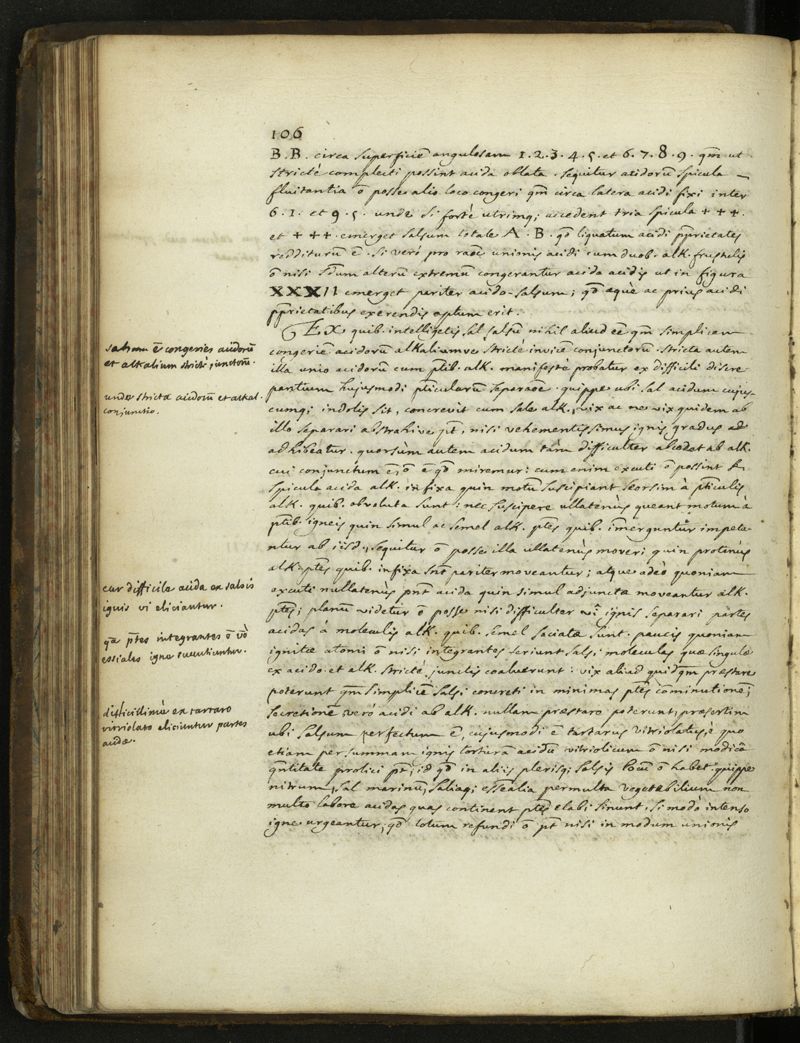 106
B. B. circa superficiē angulosam 1. 2. 3. 4. 5. et 6. 7. 8. 9. qm̄ ut
strictè complecti possint acida oblata. sequitur acidorū spicula
fluitantia ō posse alio loco congeri qm̄ circa latera acidi fixi inter
6. 1. et 9. 5. unde si fortè utrimq; accedent tria spicula +++.
et +++. emerget salsum totale A. B. qd̄ liquatum acidi pp̄rietates
redditurū ē. si verò pro raōe unionis acidi cum duob. alk. frustulis
ō nisi alterū extremū congerantur acida acidis ut in figura
XXXII emerget pariter acido-salsum; qd̄ aequè ac prius acidi
pp̄rietatibus exerendis aptum erit.
Ex quib. intelligetis sal salsū nihil aliud eē qm̄ simplicem
congeriē acidorū alkaliumve strictè invicē conjunctorū. stricta autem
illa unio acidorū cum ptib. alk. manifestè probatur ex difficili discre
pantium hujusmodi pticularū separaōe. quippe ubi sal acidum cujus-
cumq; indolis sit, concrevit cum sale alk. vix ac ne vix quidem ab
illo separari abstrahive pt, nisi vehementissimus ignis gradus
adhibeatur. quorsùm autem acidum tàm difficulter abscedat ab alk.
cui conjunctum ē, ō ē qd̄ miremur: cum enim excuti ō possint
spicula acida alk. infixa quin motū suscipiant seorsìm à pticulis
alk. quib. obvoluta sunt: nec suscipere ullatenùs queant motum à
ptib. igneis quin simul ac semel alk. ptes quib. imerguntur impete-
ntur ab iisd., sequitur ō posse illa ullatenùs moveri quin protinùs
alk. ptes quib. infixa snt pariter moveantur; atque adeò quoniam
excuti nullatenùs pnt acida quin simul adjuncta moveantur alk.
ptes; planū videtur ō posse nisi difficulter vi ignis separari partes
acidas à moleculis alk. quib. semel sociatae sunt. paucis quoniam
ignitae atomi ō nisi integrantes feriunt salsi moleculas quae singulae
ex acido et alk. strictè junctis coaluerunt: vix aliud quidqm̄ praestare
poterunt qm̄ simplicē salsi concreti in minimas ptes cominutionē;
secretionē verò acidi ab alk. nullam praestare poterunt, praesertim
ubi salsum perfectum ē, cujusmodi ē tartarus vitriolatus, è quo
etiam per summam ignis torturā acidū vitriolicum ō nisi modicâ
qntitate prolici pt; id qd̄ in aliis plerisq; salsis locū ō habet quippe
nitrum, sal marinū, saliaq; essēalia permulta vegetabilium non
multo labore acidas quas continent ptes elabi sinunt, si modo intenso
igne urgeantur, qd̄ totum refundi ō pt nisi in modum unionis
salsum ē congeries acidorū
et alkalium strictè junctorū.
unde stricta acidorū et alkal.
conjunctio.
cur difficile acida ex salsis
ignis vi eliciantur.
qa ptes integrantes ō vò
essiales igne
difficillimè ex tartaro
vitriolato eliciuntur partes
acidae.